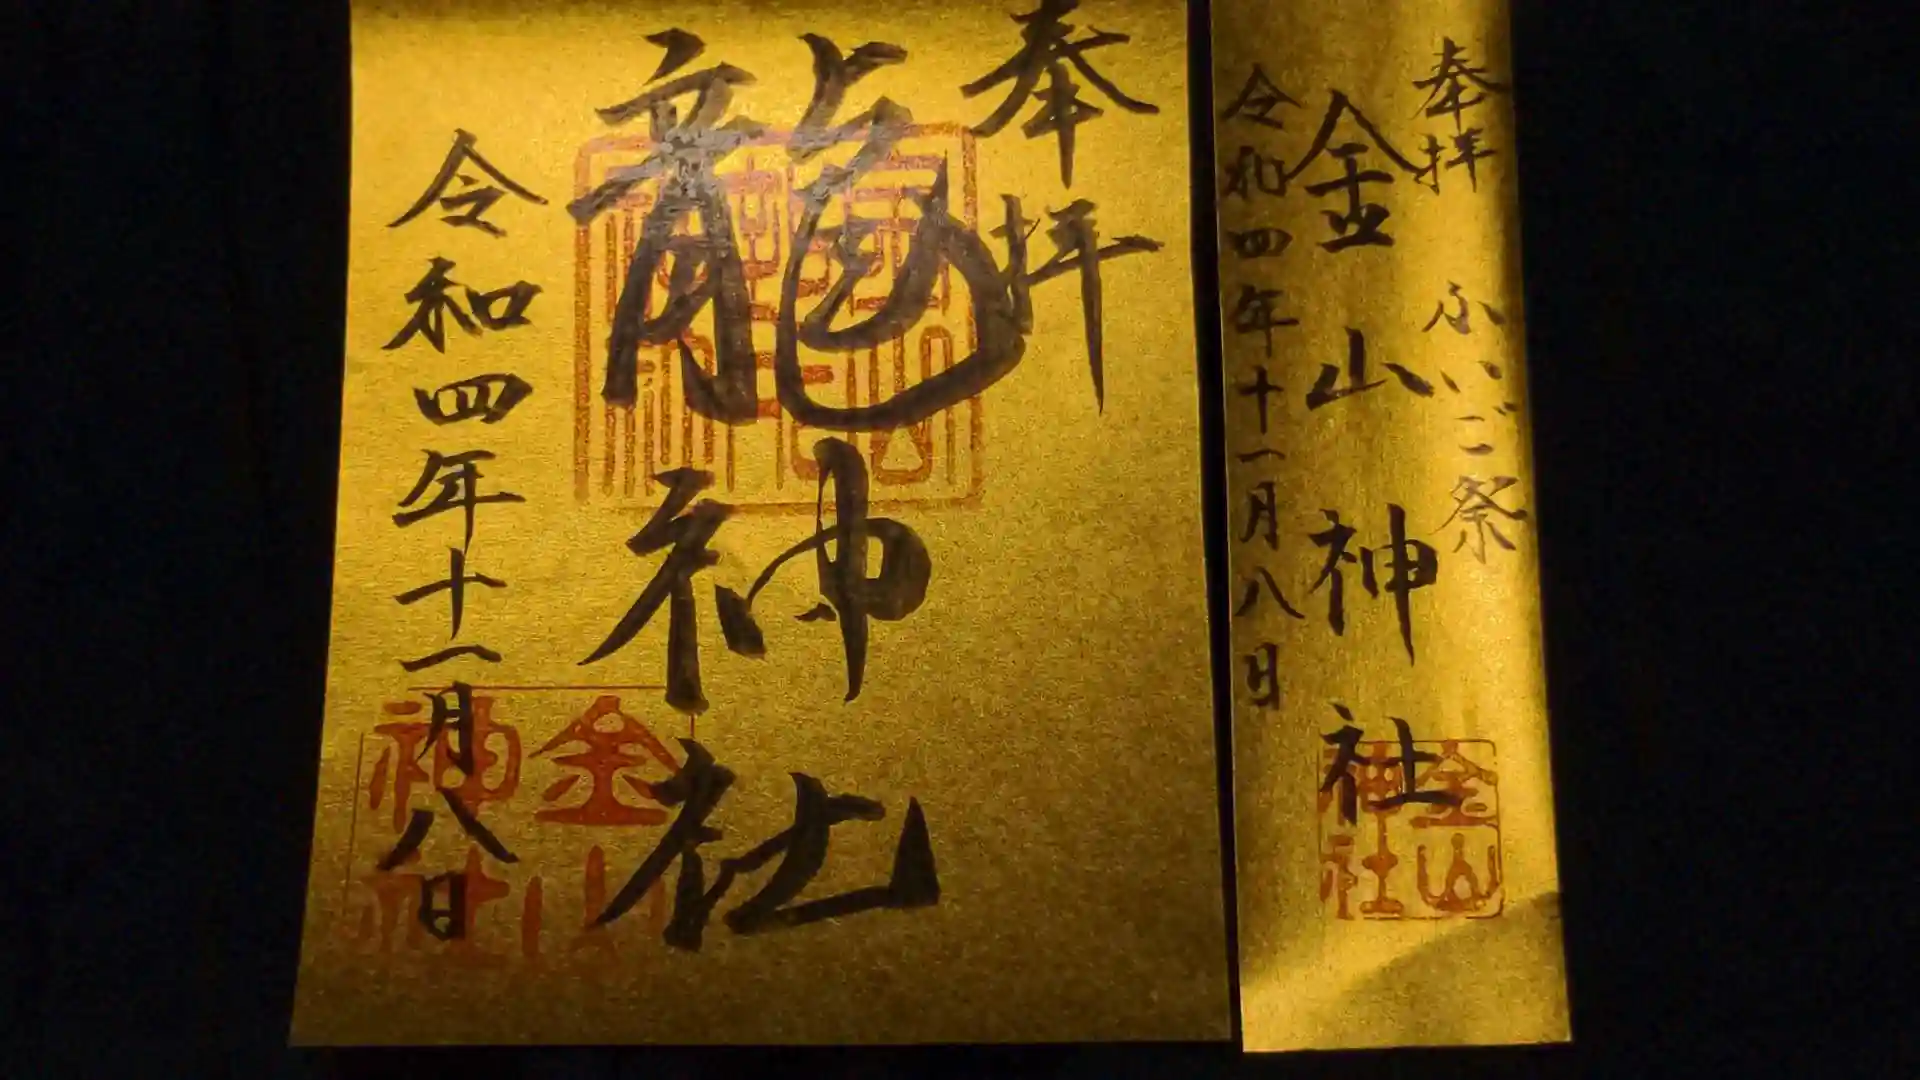 奉拝
龍神社
令和四年十一月八日
金山
神社
奉拝 ふいご祭
金山神社
令和四年十一月八日
金山
神社